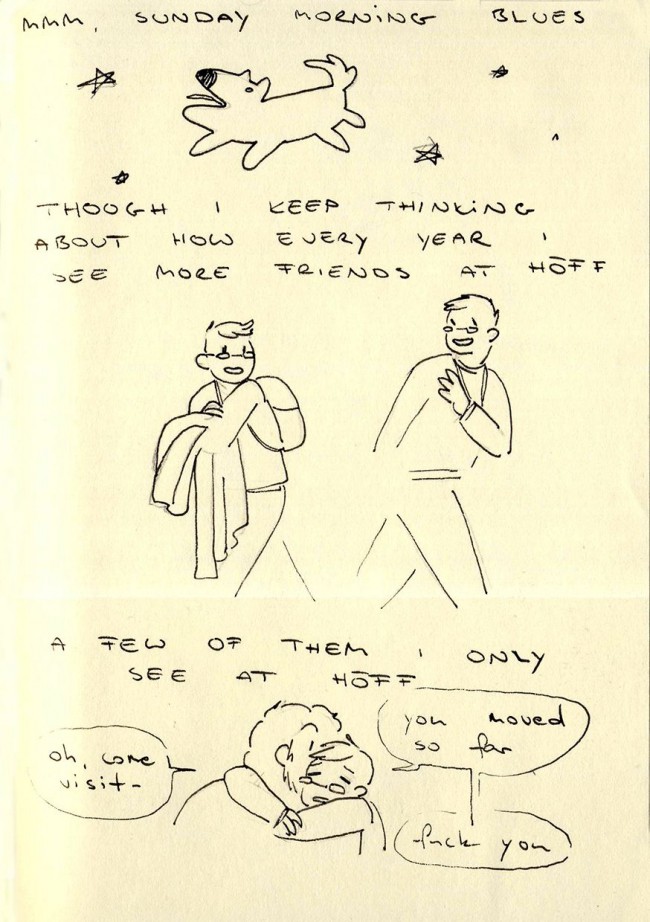 MMM, SUNDAY MORNING BLUES
THOUGH I KEEP THINKING
ABOUT HOW EVERY YEAR I
SEE MORE FRIENDS AT HŌFF
A FEW OF THEM I ONLY
SEE AT HŌFF
oh, come
visit-
you moved
so far
fuck you